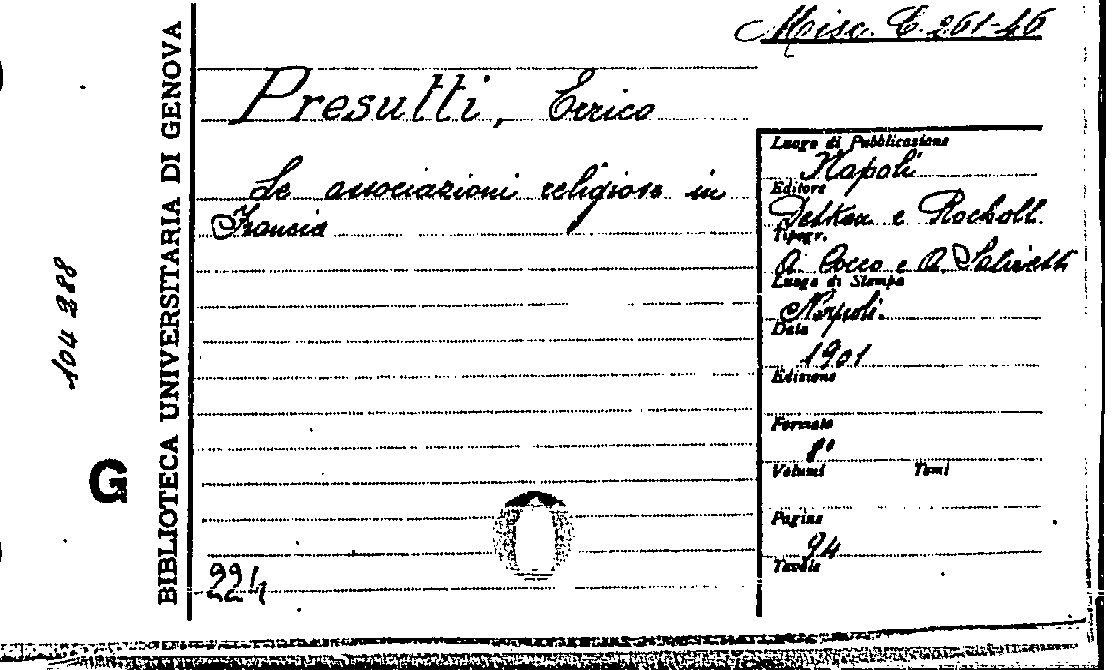 Misc. C. 261-46
Presutti, Errico
Le associazioni religiose in
Francia
Luogo di Pubblicazione
Napoli
Editore
Detken e Rocholl.
Tipogr.
A. Cocco e A. Salvietti
Luogo di Stampa
Napoli.
Data
1901
Edizione
Formato
8°
Volumi Tomi
Pagine
94
Tavole
224
BIBLIOTECA UNIVERSITARIA DI GENOVA
104288
G